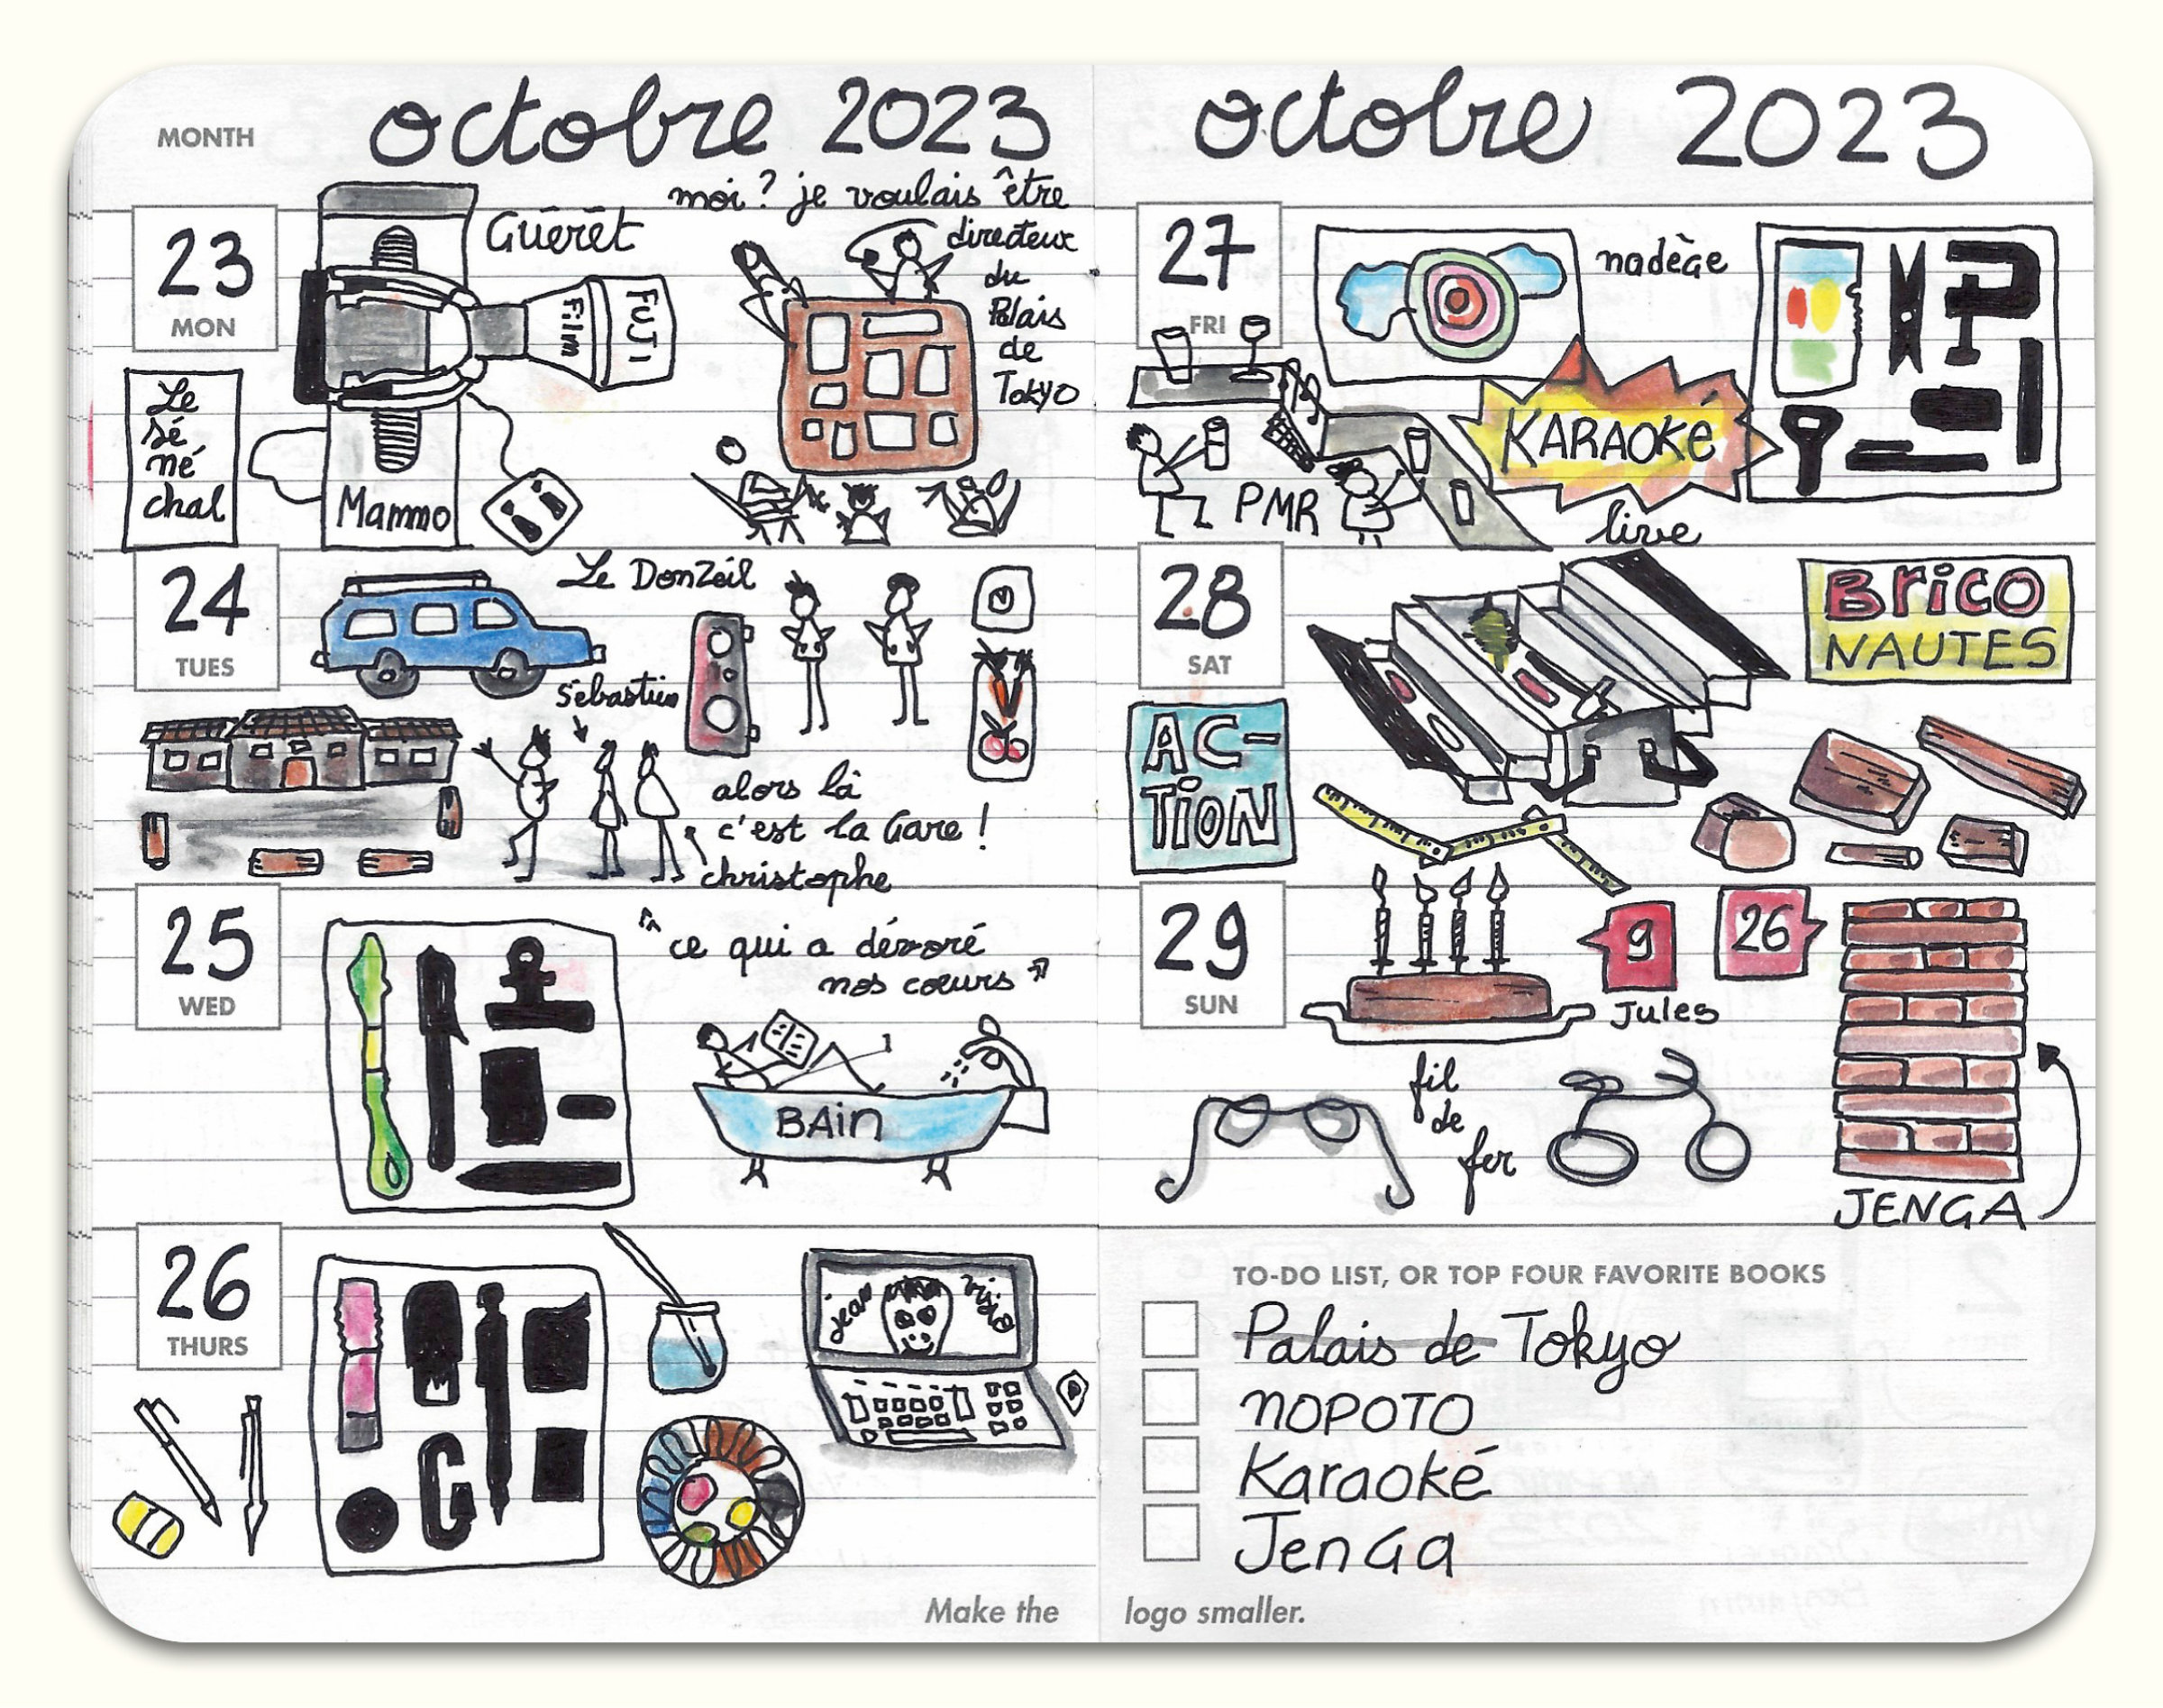 MONTH
octobre 2023
octobre 2023
23
MON
Guéret
moi? je voulais être
directeur
du
Palais
de
Tokyo
FUJI
Film
Le
sé
né
chal
Mammo
24
TUES
Le DonZeil
Sébastien
alors là
c'est la Gare !
christophe
25
WED
"ce qui a dévoré
nos cœurs"
BAin
26
THURS
jean visio
27
FRI
nadège
KARAOKé
live
PMR
28
SAT
Brico
NAUTES
AC-
TiON
29
SUN
9
26
Jules
fil
de
fer
JENGA
TO-DO LIST, OR TOP FOUR FAVORITE BOOKS
Palais de Tokyo
nOPOTO
Karaoké
JenGa
Make the logo smaller.